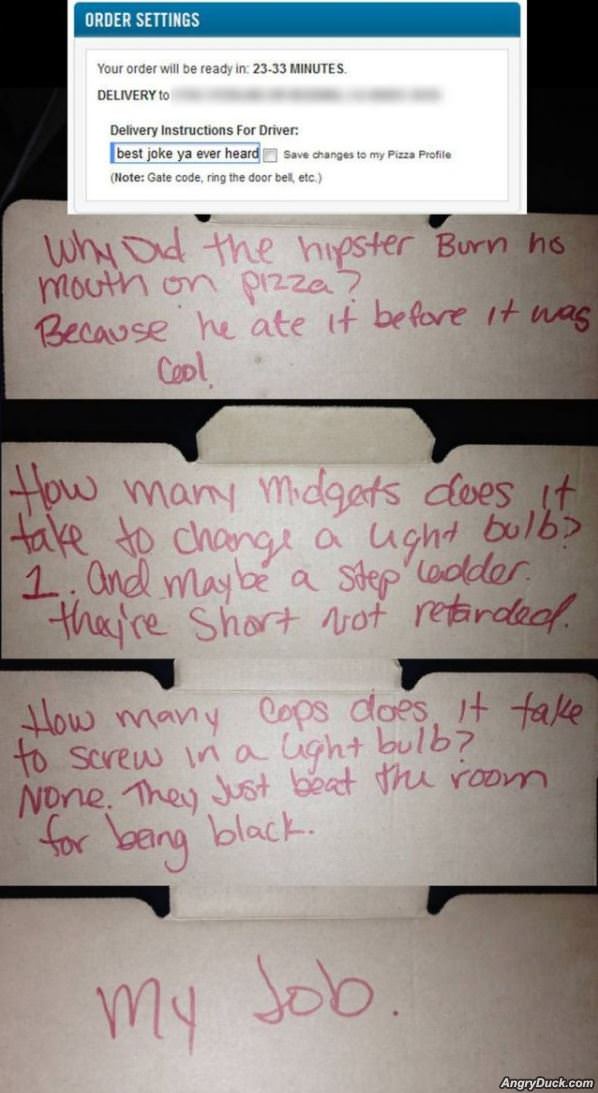 ORDER SETTINGS
Your order will be ready in: 23-33 MINUTES.
DELIVERY to
Delivery Instructions For Driver:
best joke ya ever heard Save changes to my Pizza Profile
(Note: Gate code, ring the door bell, etc.)
Why Did the hipster Burn his
mouth on pizza?
Because he ate it before it was
Cool.
How many Midgets does it
take to change a light bulb?
1. And maybe a step ladder.
they're Short Not retarded.
How many Cops does it take
to screw in a light bulb?
None. They Just beat the room
for being black.
My Job.
AngryDuck.com